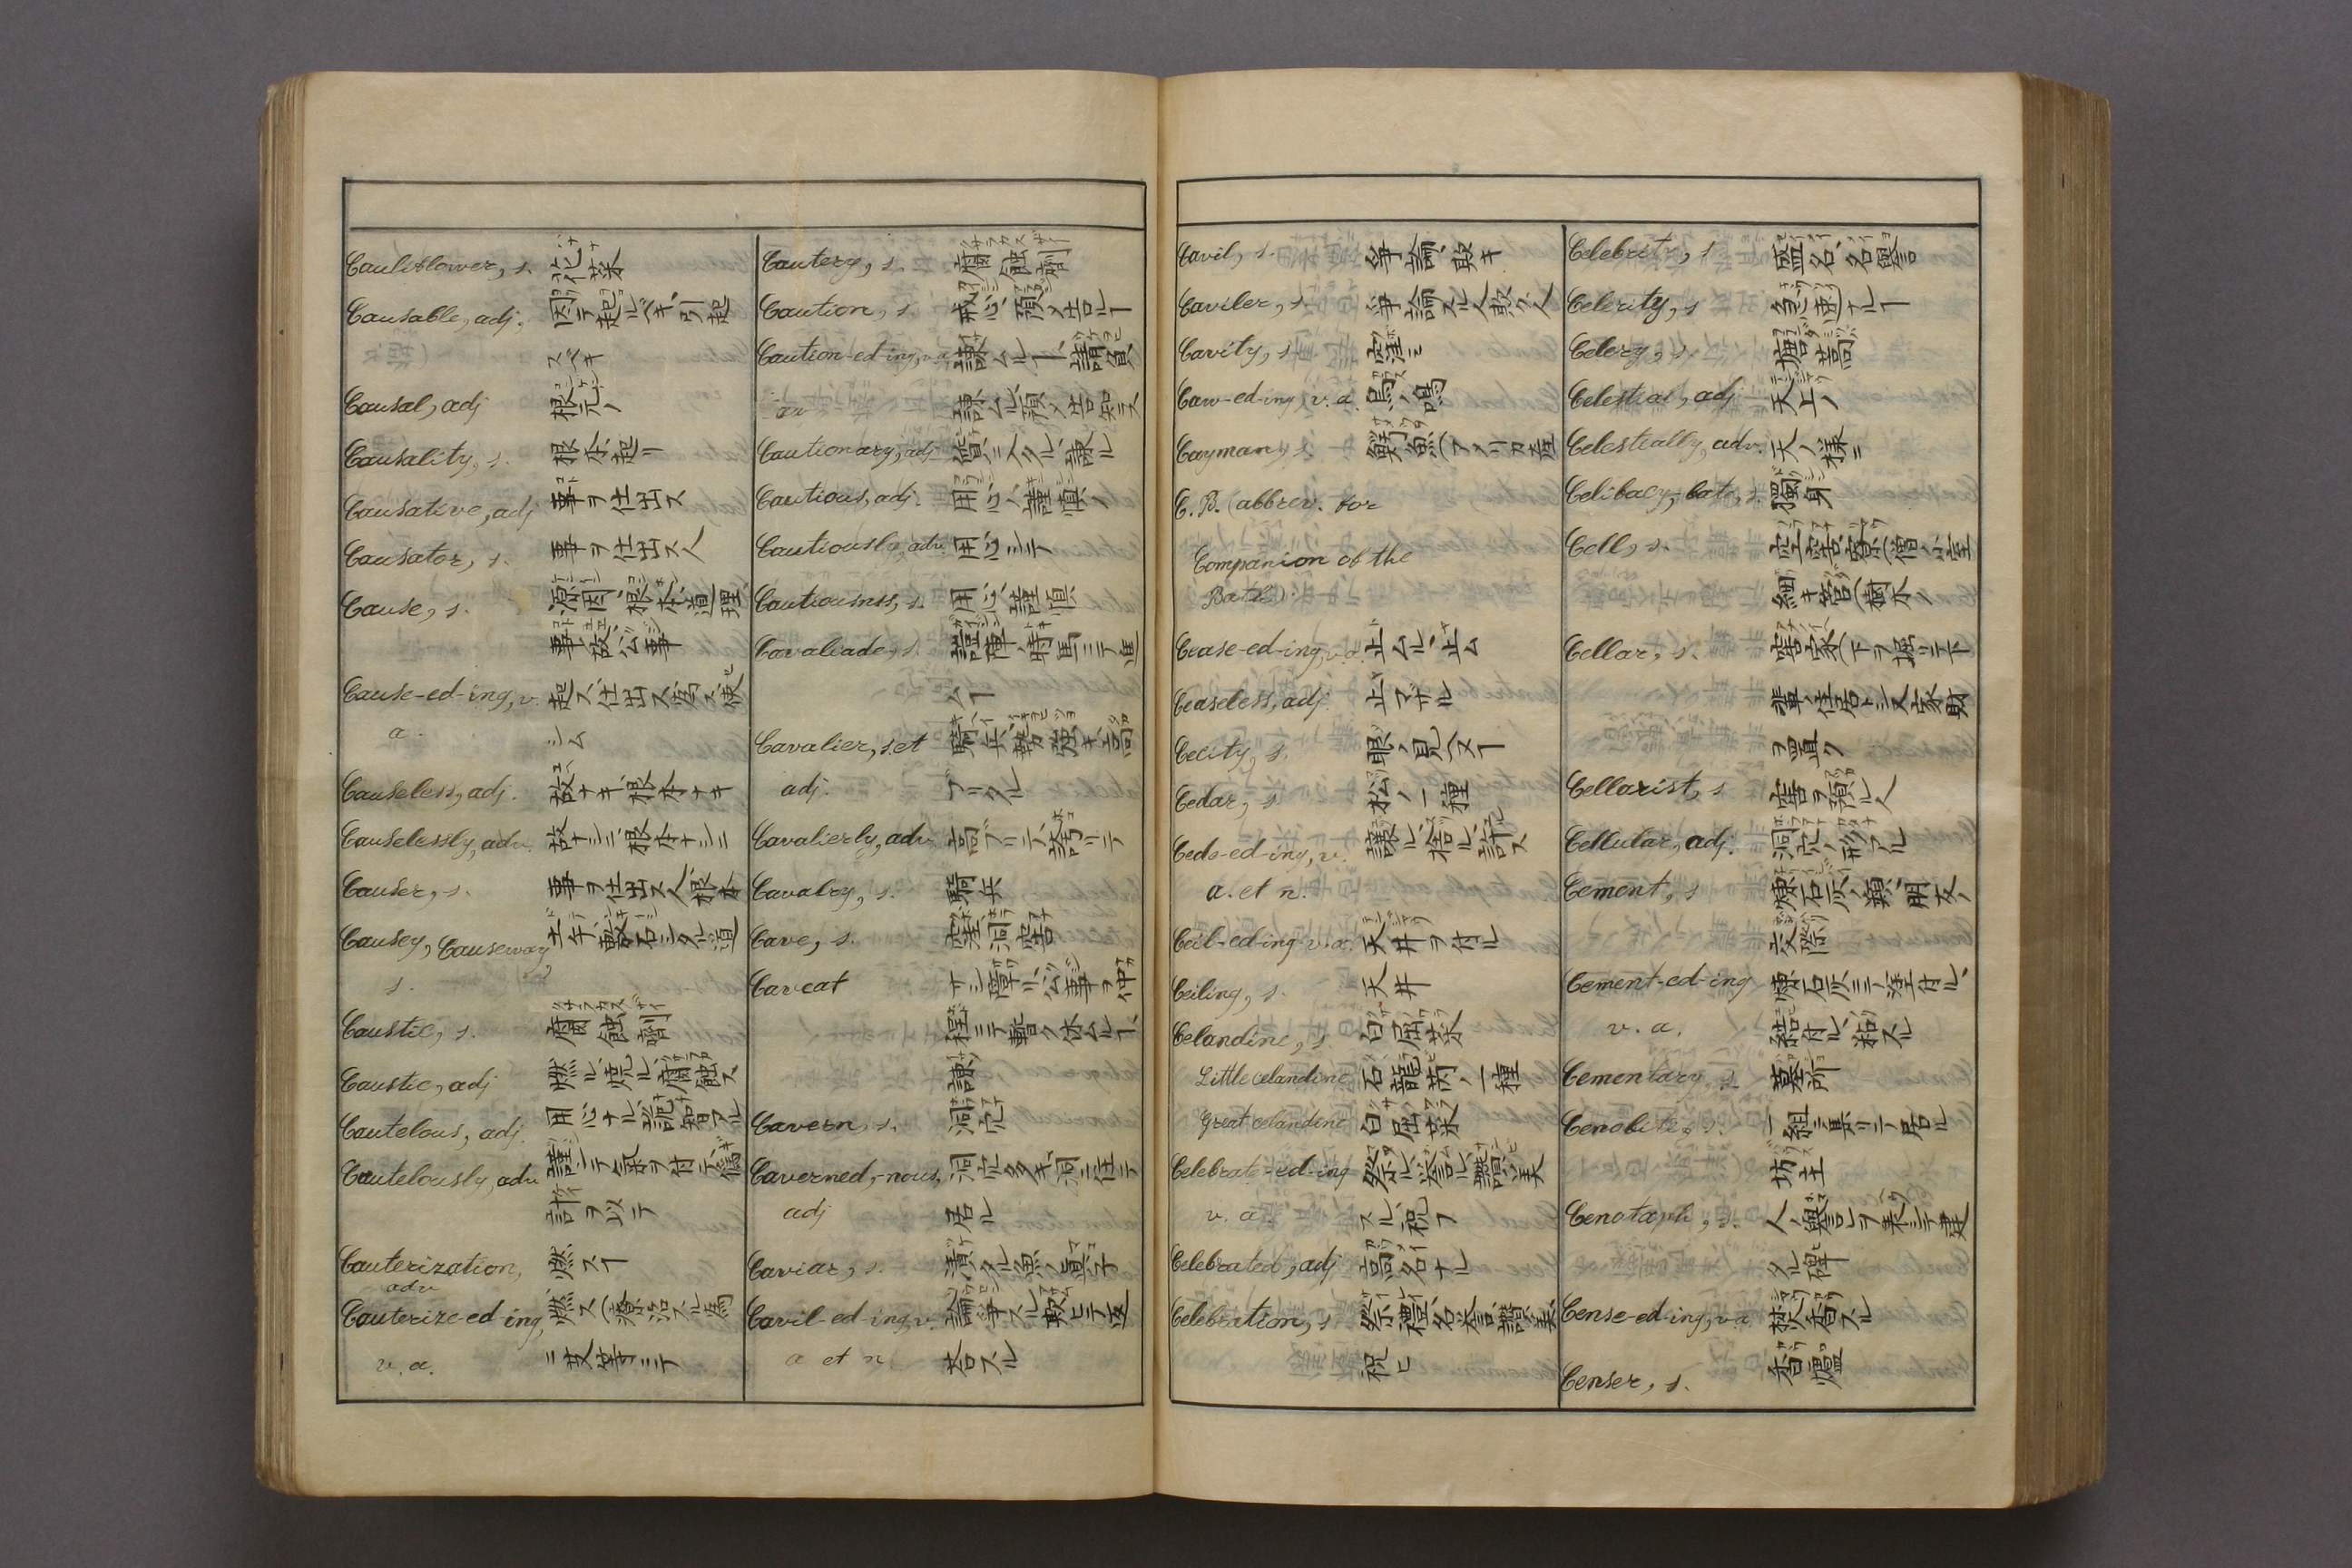 Cauliflower, s. 花菜
Causable, adj. 因テ起ルベキ、引起
スベキ
Causal, adj 根元ノ
Causality, s. 根本、起リ
Causative, adj 事ヲ仕出ス
Causator, s. 事ヲ仕出ス人
Cause, s. 源因、根本、道理、
事故、公事
Cause-ed-ing, v. 起ス、仕出ス、為ス、使
a. シム
Causeless, adj. 故ナキ、根本ナキ
Causelessly, adv. 故ナシニ、根本ナシニ
Causer, s. 事ヲ仕出ス人、根本
Causey, Causeway, 土手、敷石シタル道
s.
Caustic, s. 腐蝕劑
Caustic, adj 燃ル、焼ル、腐蝕ス
Cautelous, adj. 用心ナル、
Cautelously, adv 謹シテ、氣ヲ付テ、偽
計ヲ以テ
Cauterization, 燃スヿ
adv
Cauterize-ed-ing, 燃ス(療治スル為
v. a. ニ艾等ニテ
Cautery, s. 腐蝕劑
Caution, s. 用心、預メ告ルヿ
Caution-ed-ing, v.a 諌ムルヿ、請負
諌ムル、預メ告知ス
Cautionary, adj 質ニ入タル、諌ル
Cautious, adj. 用心ノ、謹慎ノ
Cautiously, adv. 用心シテ
Cautiousness, s. 用心、謹慎
Cavaliade, s.
ムヿ
Cavalier, s. et 騎兵、勢強キ、高
adj. ブリタル
Cavalierly, adv 高ブリテ、誇リテ
Cavalry, s. 騎兵
Cave, s. 窪、洞、窖
Caveat 公事ヲ仲
程ニテ暫ク休ムルヿ、
諌
Cavern, s. 洞穴
Caverned,-nous, 洞穴多キ、洞ニ住テ
adj 居ル
Caviar, s. 漬タル魚ノ真子
Cavil-ed-ing, v. 論爭スル、欺ヒテ返
a et n. 答スル
Cavil, s. 爭論、欺キ
Caviler, s. 爭論スル人、欺ク人
Cavity, s. 窪ミ
Caw-ed-ing, v. a. 烏ノ鳴
Cayman, s. 鰐魚(アメリカ産
C. B. (abbrev. for
Companion of the
Bath).
Cease-ed-ing, v.a. 止ムル、止ム
Ceaseless, adj. 止マザル
Cecity, s. 眼ノ見ヘヌヿ
Cedar, s. 松ノ一種
Cede-ed-ing, v. 譲ル、捨ル、許ス
a. et n.
Ceil-ed-ing v. a. 天井ヲ付ル
Ceiling, s. 天井
Celandine, s. 白屈菜
Little celandine 石龍芮ノ一種
Great celandine 白屈菜
Celebrate-ed-ing 祭ル、誉ル、讃美
v. a. スル、祝フ
Celebrated, adj 高名ナル
Celebration, s. 祭禮、名誉、讃美、
祝ヒ
Celebrity, s 盛名、名譽
Celerity, s 急速ナルヿ
Celery, s. 塘蒿
Celestial, adj 天上ノ
Celestially, adv. 天ノ様ニ
Celibacy,-bate, s. 獨身
Cell, s. 空、窖、窠(僧ノ小室
細キ管(樹木ノ
Cellar, s. 窖家(下ヲ堀リテ下
輩ノ住居トシ又家財
ヲ置ク
Cellarist, s 窖ヲ預ル人
Cellular, adj. 洞穴ノ形アル
Cement, s 煉石灰ノ類、朋友ノ
交際
Cement-ed-ing 煉石灰ニテ塗付ル、
v. a. 結付ル、和スル
Cementary s. 墓所
Cenobite, s. 一組ニ集リテ居ル
坊主
Cenotaph, s. 人ノ誉ヒヲ表シテ建
タル碑
Cense-ed-ing, v.a. 焚香スル
Censer, s. 香爐